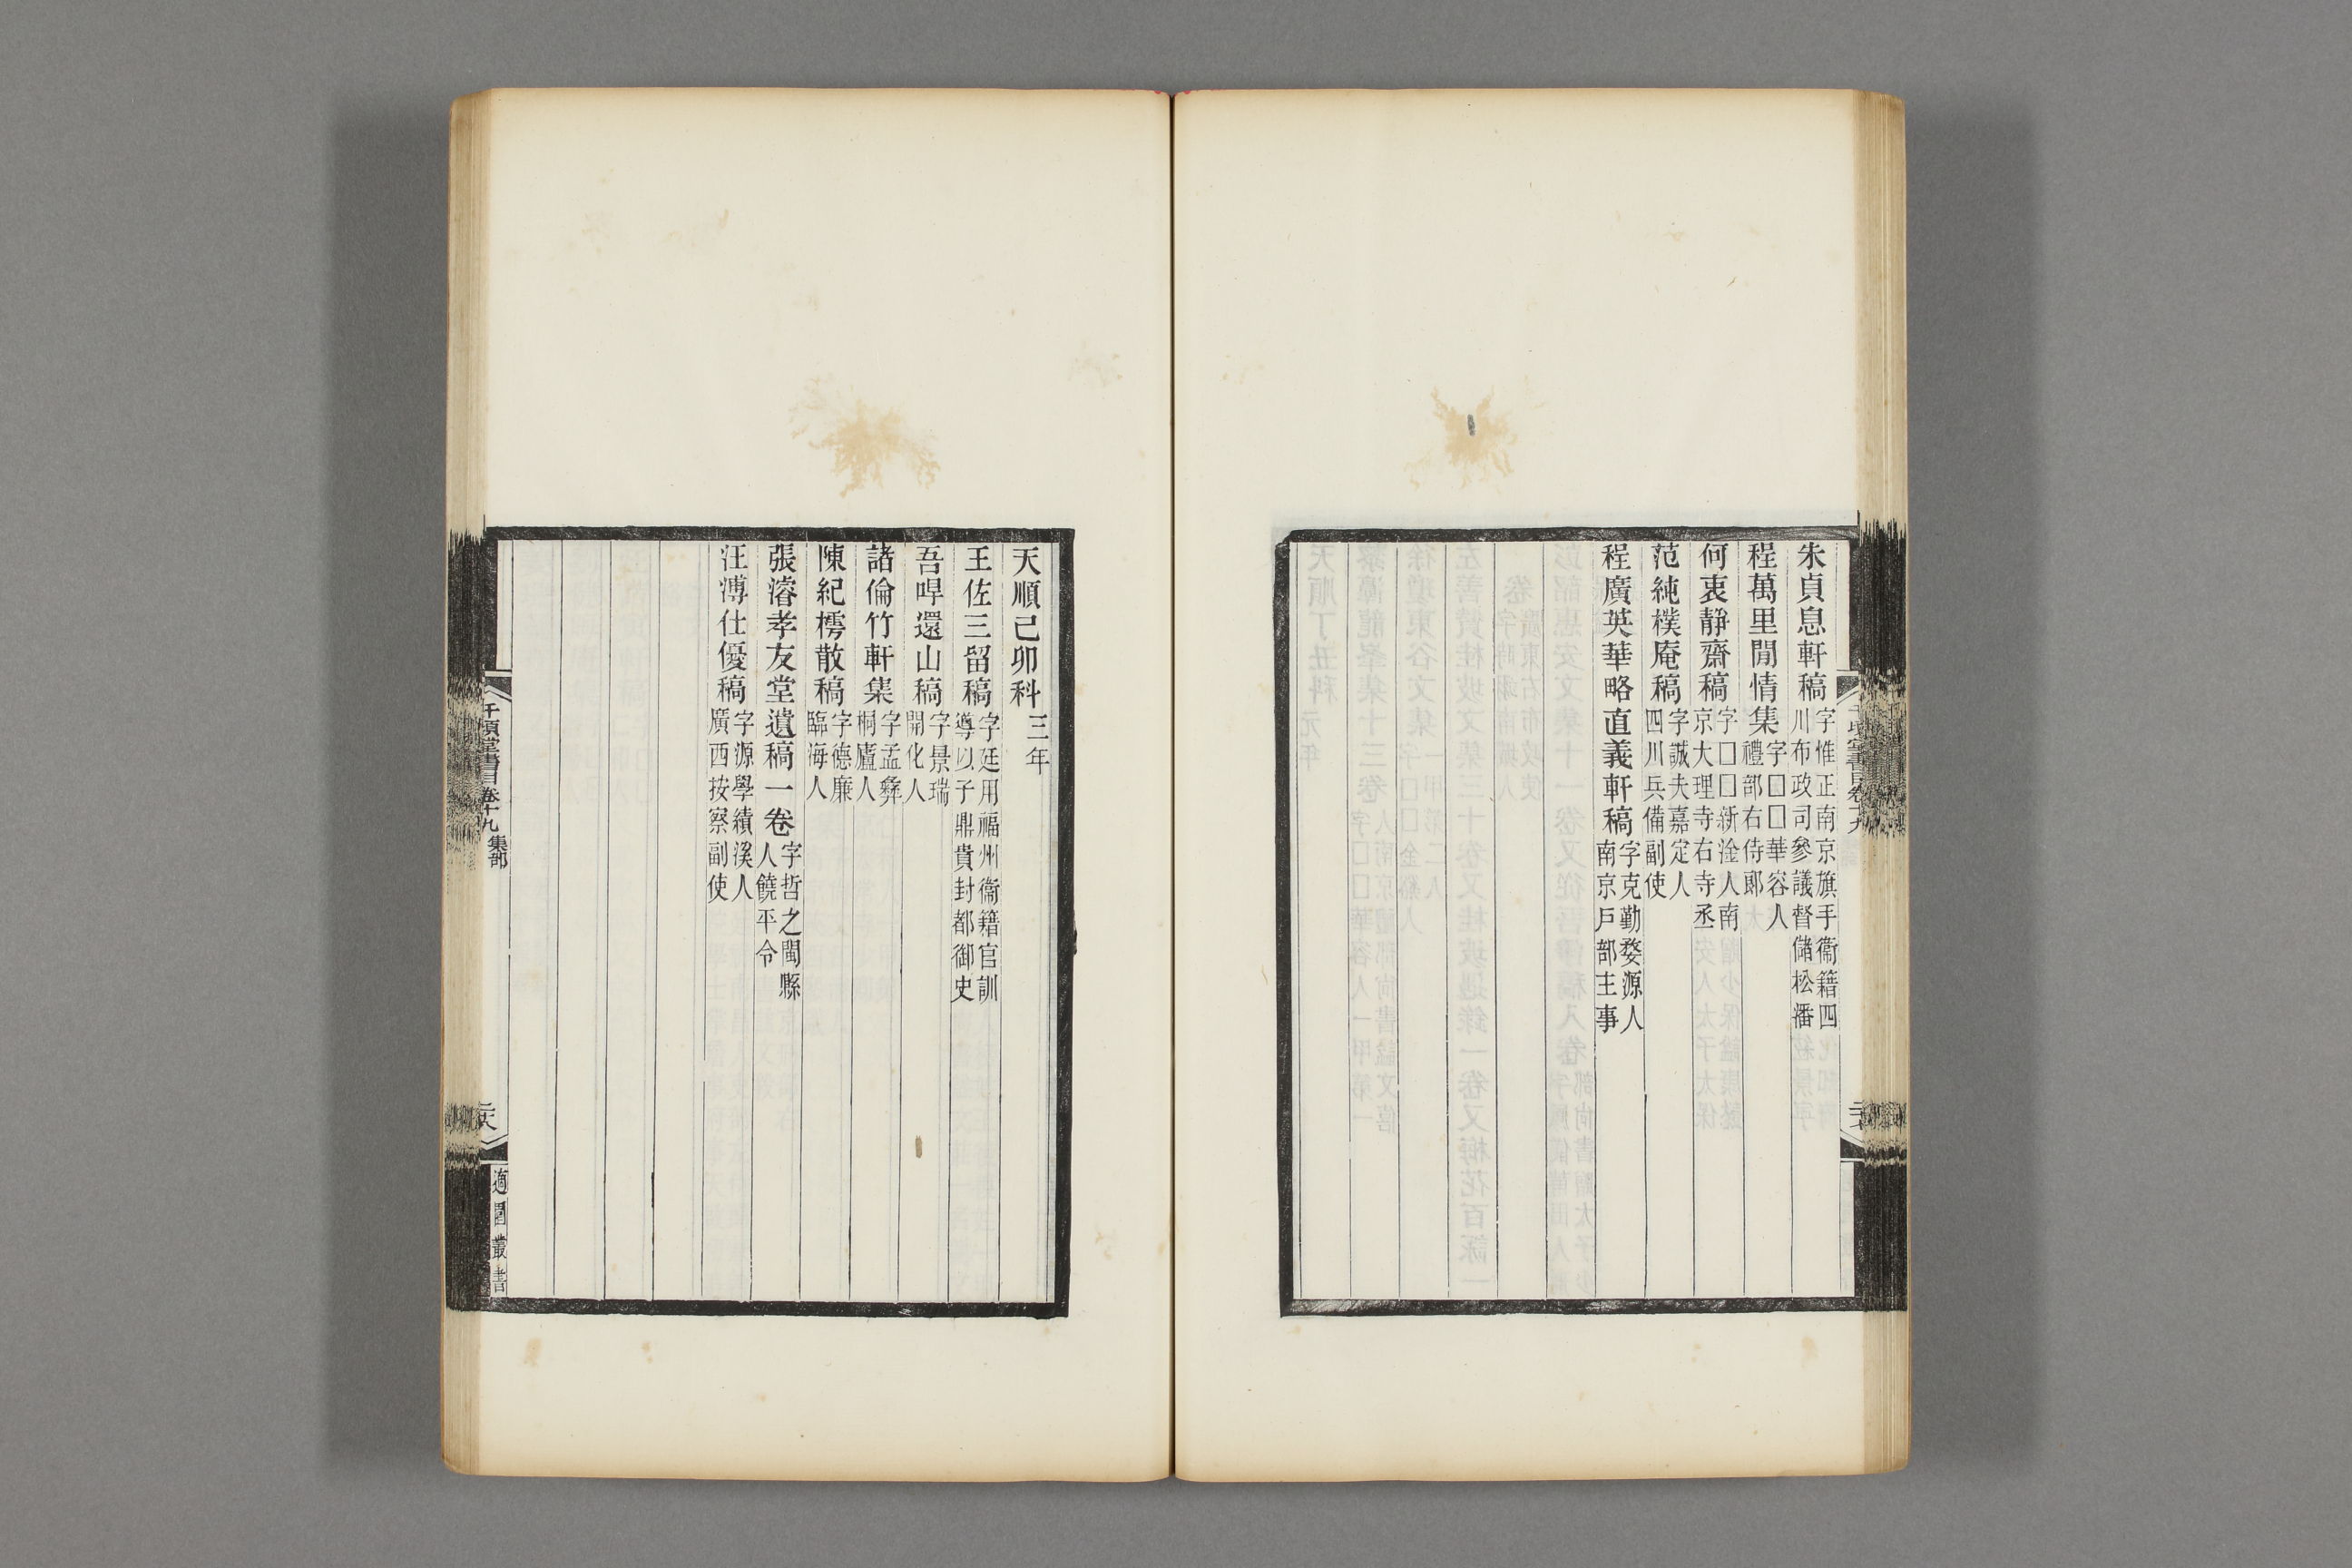 朱貞息軒稿字惟正南京旗手衞籍四川布政司參議督儲松潘
程萬里閒情集字□□華容人禮部右侍郎
何衷靜齋稿字□□新淦人南京大理寺右寺丞
范純樸庵稿字誠夫嘉定人四川兵備副使
程廣英華略直義軒稿字克勤婺源人南京戶部主事
天順己卯科三年
王佐三留稿字廷用福州衞籍官訓導以子鼎貴封都御史
吾㖔還山稿字景瑞開化人
諸倫竹軒集字孟彝桐廬人
陳紀樗散稿字德廉臨海人
張濬孝友堂遺稿一卷字哲之閩縣人饒平令
汪溥仕優稿字源學績溪人廣西按察副使
千頃堂書目卷十九 集部
適園叢書